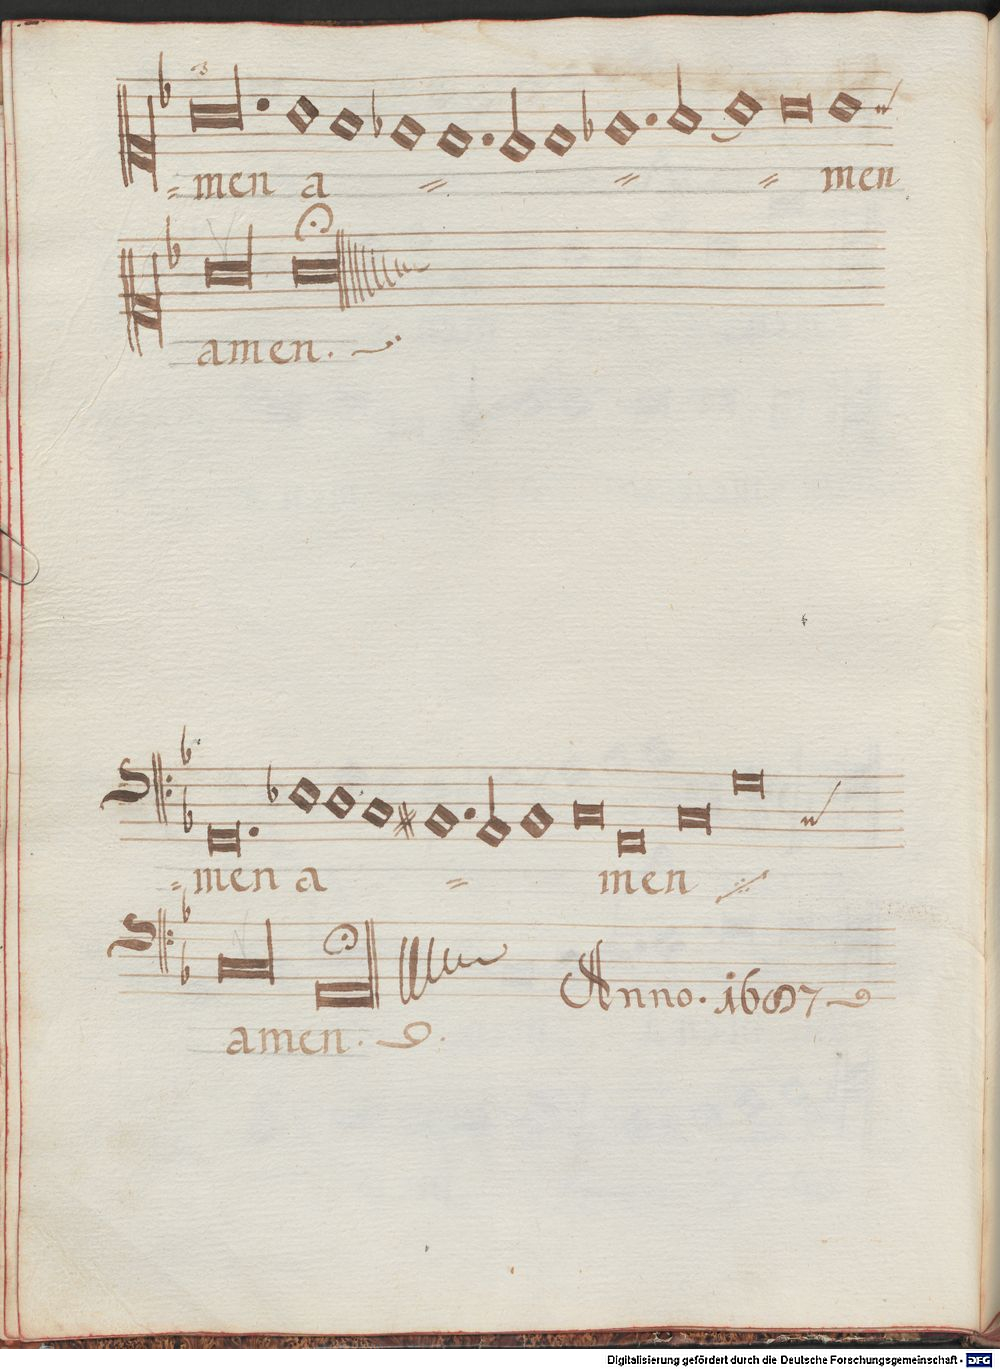 3
= men a = = = men
amen.
= men a = men
Anno. 1687
amen.
Digitalisierung gefördert durch die Deutsche Forschungsgemeinschaft - DFG